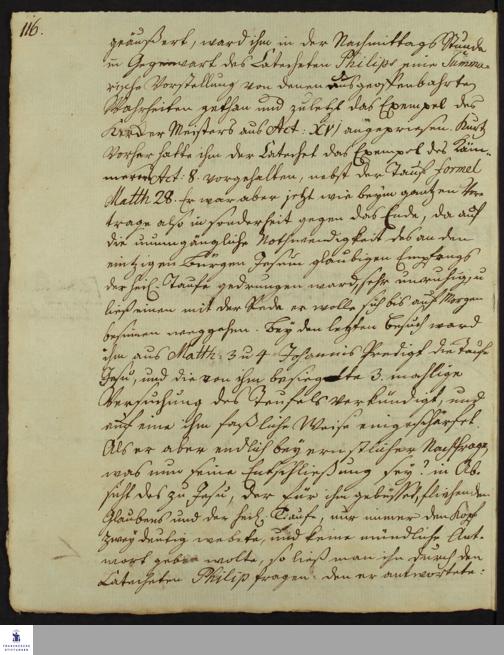 116.
geäußert, ward ihm in der Nachmittags Stunde
in Gegenwart des Catecheten Philips eine Summa-
rische Vorstellung von denen uns geoffenbahrten
Wahrheiten gethan und zuletzt das Exempel des
Kerckermeisters aus Act: XVI angepriesen. Kurtz
vorher hatte ihm der Catechet das Exempel des Käm-
merers Act: 8. vorgehalten, nebst der Tauf formel
Matth 28. Er war aber jetzt wie beym gantzen Vor-
trage also in sonderheit gegen das Ende, da auf
die unumgängliche Nothwendigkeit des an den
eintzigen Bürgen Jesum gläubigen Empfangs
der heil. Taufe gedrungen ward, sehr unruhig, u
ließ einen mit der Rede er wolle sich bis auf Morgen
besinnen weggehen. Bey den letzten Besuch ward
ihm aus Matth: 3 u 4 Johannis Predigt die Taufe
Jesu, und die von ihm besiegte 3. mahlige
Versuchung des Teufels verkündigt, und
auf eine ihm faßliche Weise eingeschärfet.
Als er aber endlich bey ernstlicher Nachfrage,
was nun seine Entschließung sey? in Ab-
sicht des zu Jesu, der für ihn gebüsset, fliehenden
Glaubens und der heil. Taufe, nur immer den Kopf
zweydeutig webete, und keine mündliche Ant-
wort geben wolte, so ließ man ihn durch den
Catecheten Philip fragen: den er antwortete:
FRANCKESCHE
STIFTUNGEN